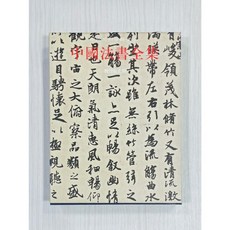 中國法書全集
領茂林脩竹又有清流激
帶左右引以為流觴曲水
列坐其次雖無絲竹管弦之
一觴一詠亦足以暢敘幽情
也天朗氣清惠風和暢仰
觀宇宙之大俯察品類之盛
以遊目騁懷足以極視聽之